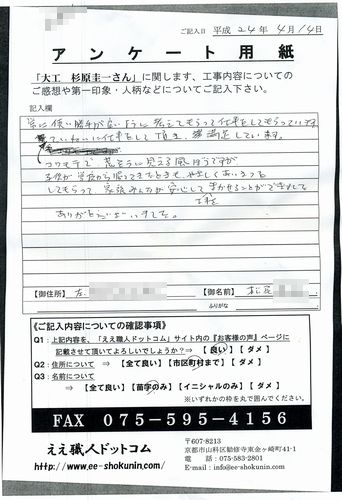 ご記入日 平成 24年 4月14日
アンケート用紙
「大工 杉原圭一さん」に関します、工事内容についての
ご感想や第一印象・人柄などについてご記入下さい。
記入欄
常に使い勝手がいいように考えてもらって仕事をしてもらっています
ていねいに仕事をして頂き、満足しています。
コワモテで 恐そうに見える風ぼうですが
子供が学校から帰ってきたときも、やさしくあいさつも
してもらって、家族みんなが安心して まかせることができまして
ありがとうございました。
【御住所】 左
【御名前】 松尾
ふりがな
《ご記入内容についての確認事項》
Q1：上記内容を、「ええ職人ドットコム」サイト内の『お客様の声』ページに
記載させて頂してよろしいでしょうか？⇒ 【 良い 】 【 ダメ 】
Q2：住所について ⇒ 【 全て良い 】 【 市区町村まで 】 【 ダメ 】
Q3：名前について
⇒ 【 全て良い 】 【 苗字のみ 】 【 イニシャルのみ 】 【 ダメ 】
※いずれかの枠を丸で囲んでください。
FAX 075-595-4156
ええ職人ドットコム
http://www.ee-shokunin.com/
〒607-8213
京都市山科区勧修寺東金ヶ崎町41-1
電 話：075-583-2801
E-mail：info@ee-shokunin.com